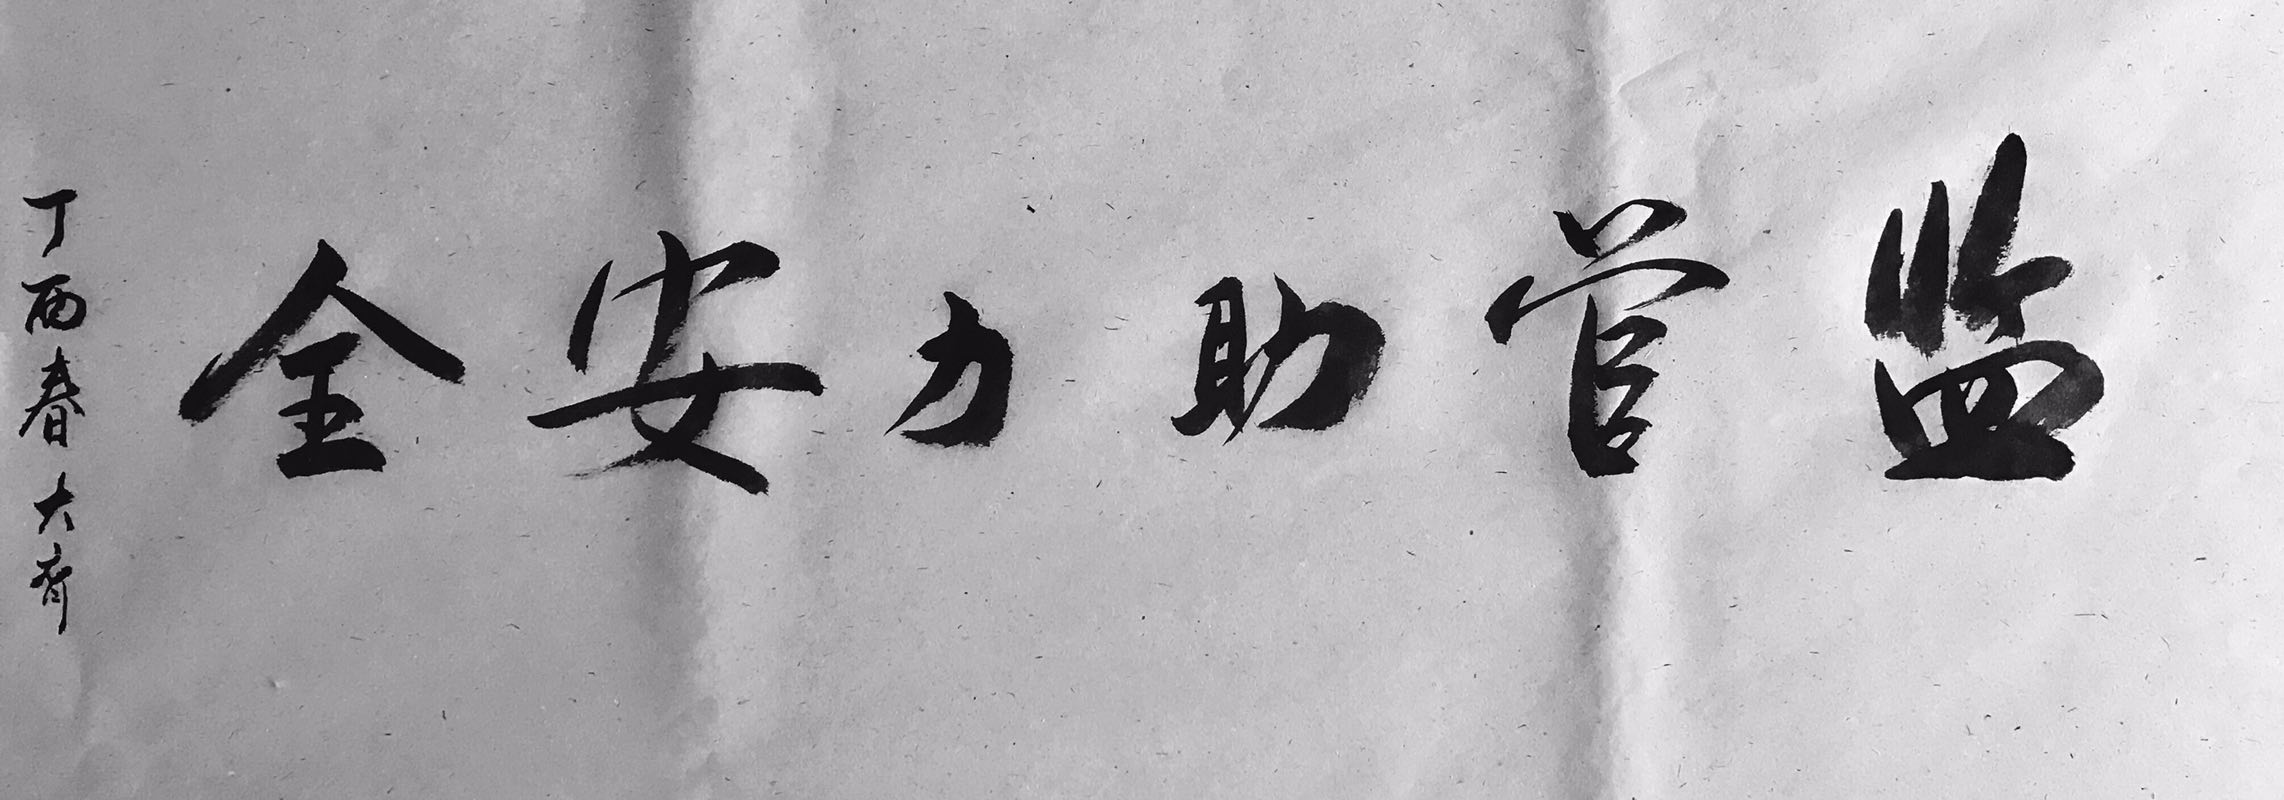 监管助力安全
丁酉春大齐